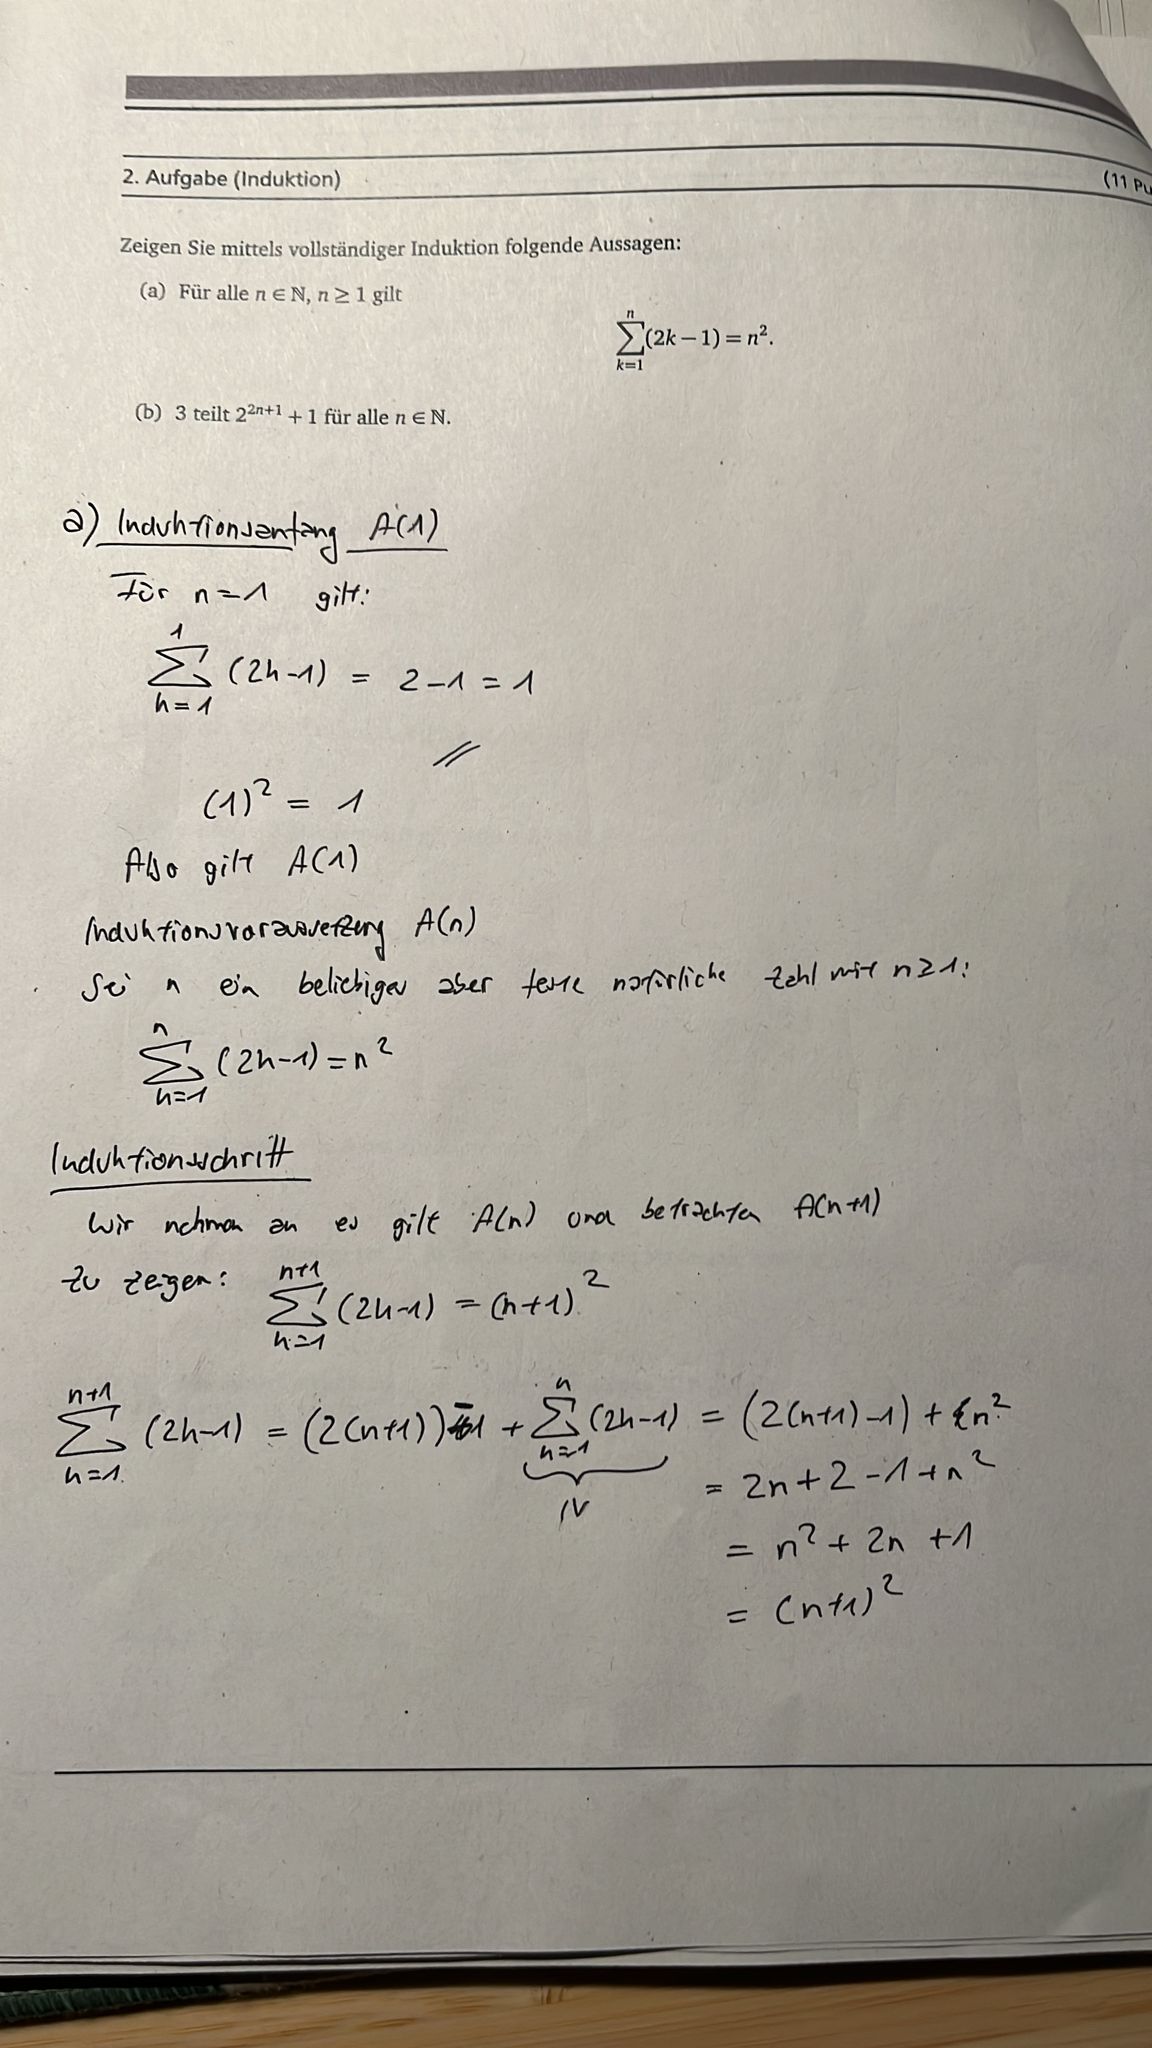 2. Aufgabe (Induktion) (11 Pu
Zeigen Sie mittels vollständiger Induktion folgende Aussagen:
(a) Für alle n ∈ ℕ, n ≥ 1 gilt
∑_{k=1}^{n} (2k − 1) = n².
(b) 3 teilt 2^{2n+1} + 1 für alle n ∈ ℕ.
a) Induktionsanfang A(1)
Für n = 1 gilt:
∑_{k=1}^{1} (2k-1) = 2-1 = 1
//
(1)² = 1
Also gilt A(1)
Induktionsvoraussetzung A(n)
Sei n ein beliebiges aber feste natürliche Zahl mit n ≥ 1:
∑_{k=1}^{n} (2k-1) = n²
Induktionsschritt
Wir nehmen an es gilt A(n) und betrachten A(n+1)
Zu zeigen: ∑_{k=1}^{n+1} (2k-1) = (n+1)²
∑_{k=1}^{n+1} (2k-1) = (2(n+1))-1 + ∑_{k=1}^{n} (2k-1) = (2(n+1)-1) + n²
IV
= 2n+2-1+n²
= n² + 2n + 1
= (n+1)²